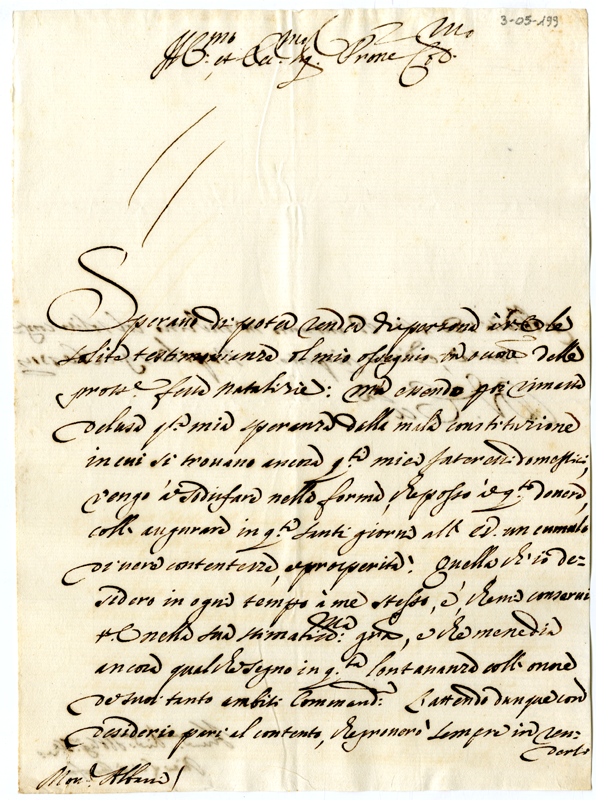 3-05-199
Ill.mo et Ecc. Sig. Prone
Speravo di poter render di persona à V.E. le
solite testimonianze del mio ossequio in occ.ne delle
pross.e feste natalizie: ma avendo poi rimasta
delusa q.ta mia speranza dalla mala constituzione
in cui si trovano ancora q.ti miei interessi domestici,
vengo à sodisfare nella forma, che posso à q.to dovere,
coll' augurare in q.ti santi giorni all' E.V. un cumulo
di vere contentezze, e prosperità. Quello ch' io de-
sidero in ogni tempo à me stesso, è, che mi conservi
V.E. nella sua stimatiss.ma grã, e che me ne dia
ancora qualche segno in q.ta lontananza coll' onore
de suoi tanto ambiti Command.ti L'attendo dunque con
desiderio pari al contento, che proverò sempre in ren-
derle
Mon.r Albani